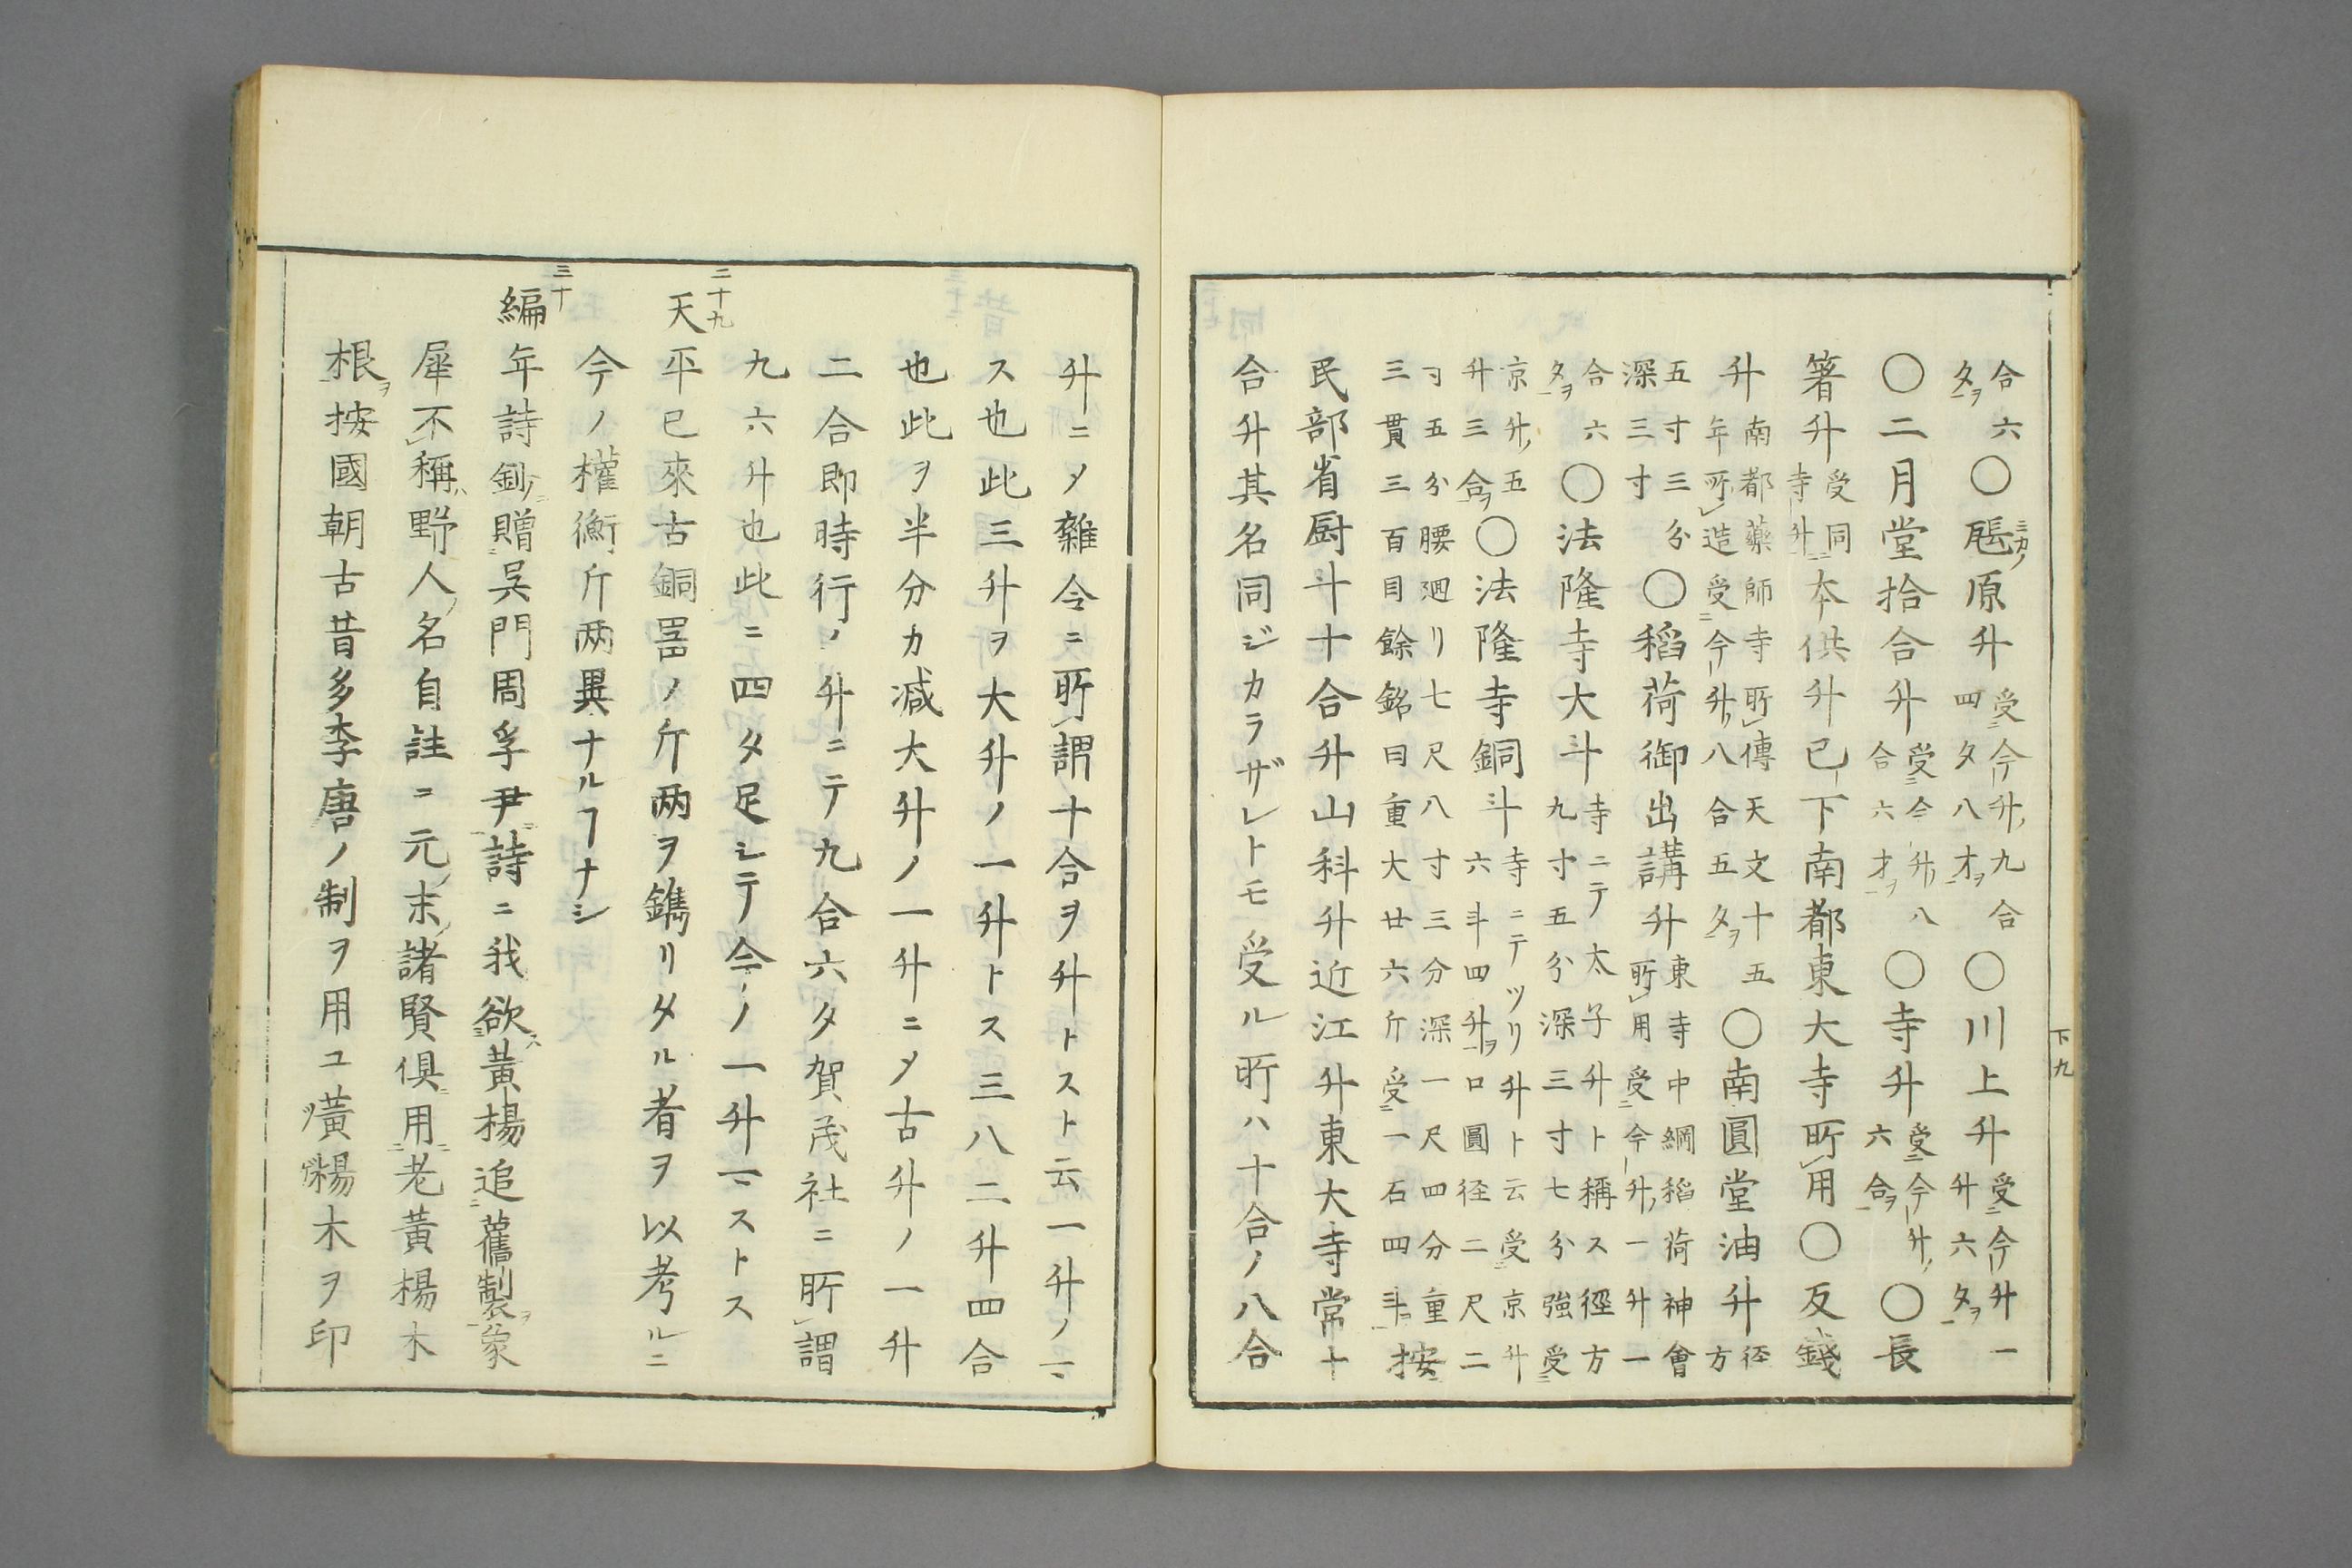 合六
夕ヲ
〇瓺原升
三カノ
受今升九合
四夕八才ヲ
〇川上升
受今升一
升六夕ヲ
〇二月堂拾合升
受今升八
合六才ヲ
〇寺升
受今升
六合ヲ
〇長
箸升
受同
寺升
本供升已下南都東大寺所用〇反錢
升
南都藥師寺所傳天文十五
年所造受今升八合五夕ヲ
〇南圓堂油升
径
方
五寸三分
深三寸
〇稻荷御出講升
東寺中綱稻荷神會
所用受今升一升一
合六
夕ヲ
〇法隆寺大斗
寺ニテ太子升ト稱ス徑方
九寸五分深三寸七分強受
京升五
升三合ヲ
〇法隆寺銅斗
寺ニテツリ升ト云受京升
六斗四升ヲ口圓径二尺二
寸五分腰廻リ七尺八寸三分深一尺四分重
三貫三百目餘銘曰重大廿六斤受一石四斗ヲ
按
民部省厨斗十合升山科升近江升東大寺常十
合升其名同ジカラザレトモ受ル所ハ十合ノ八合
下九
升ニメ雜令ニ所謂十合ヲ升トスト云一升ノ一
ス也此三升ヲ大升ノ一升トス三八二升四合
也此ヲ半分カ減大升ノ一升ニメ古升ノ一升
二合即時行ノ升ニテ九合六夕賀茂社ニ所謂
九六升也此ニ四夕足シテ今ノ一升一ストス
二十九
天平已來古銅噐ノ斤两ヲ鐫リタル者ヲ以考ルニ
今ノ權衡斤两異ナルヿナシ
三十
編年詩釗贈吳門周孚尹詩ニ我欲黃楊追舊製象
犀不稱野人名自註ニ元末諸賢俱用老黃楊木
根按國朝古昔多李唐ノ制ヲ用ユ黃楊木ヲ印